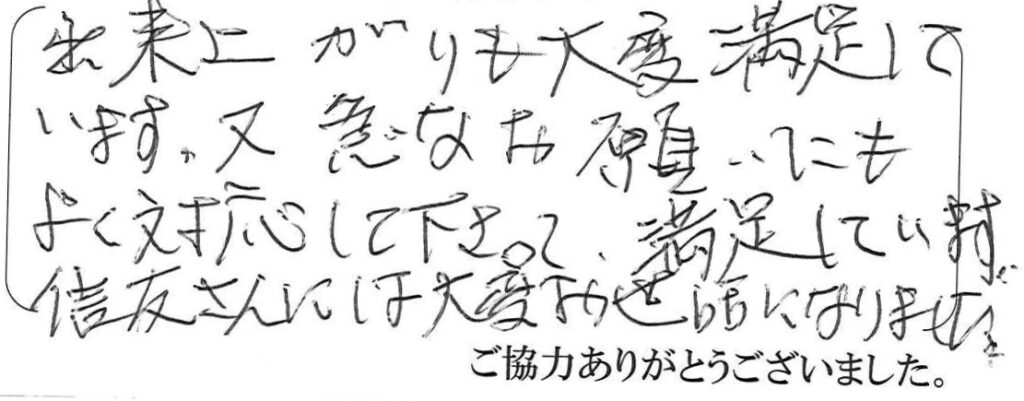 出来上がりも大変満足して
います。又急なお願いにも
よく対応して下さって、満足しています。
信友さんには大変お世話になりました。
ご協力ありがとうございました。